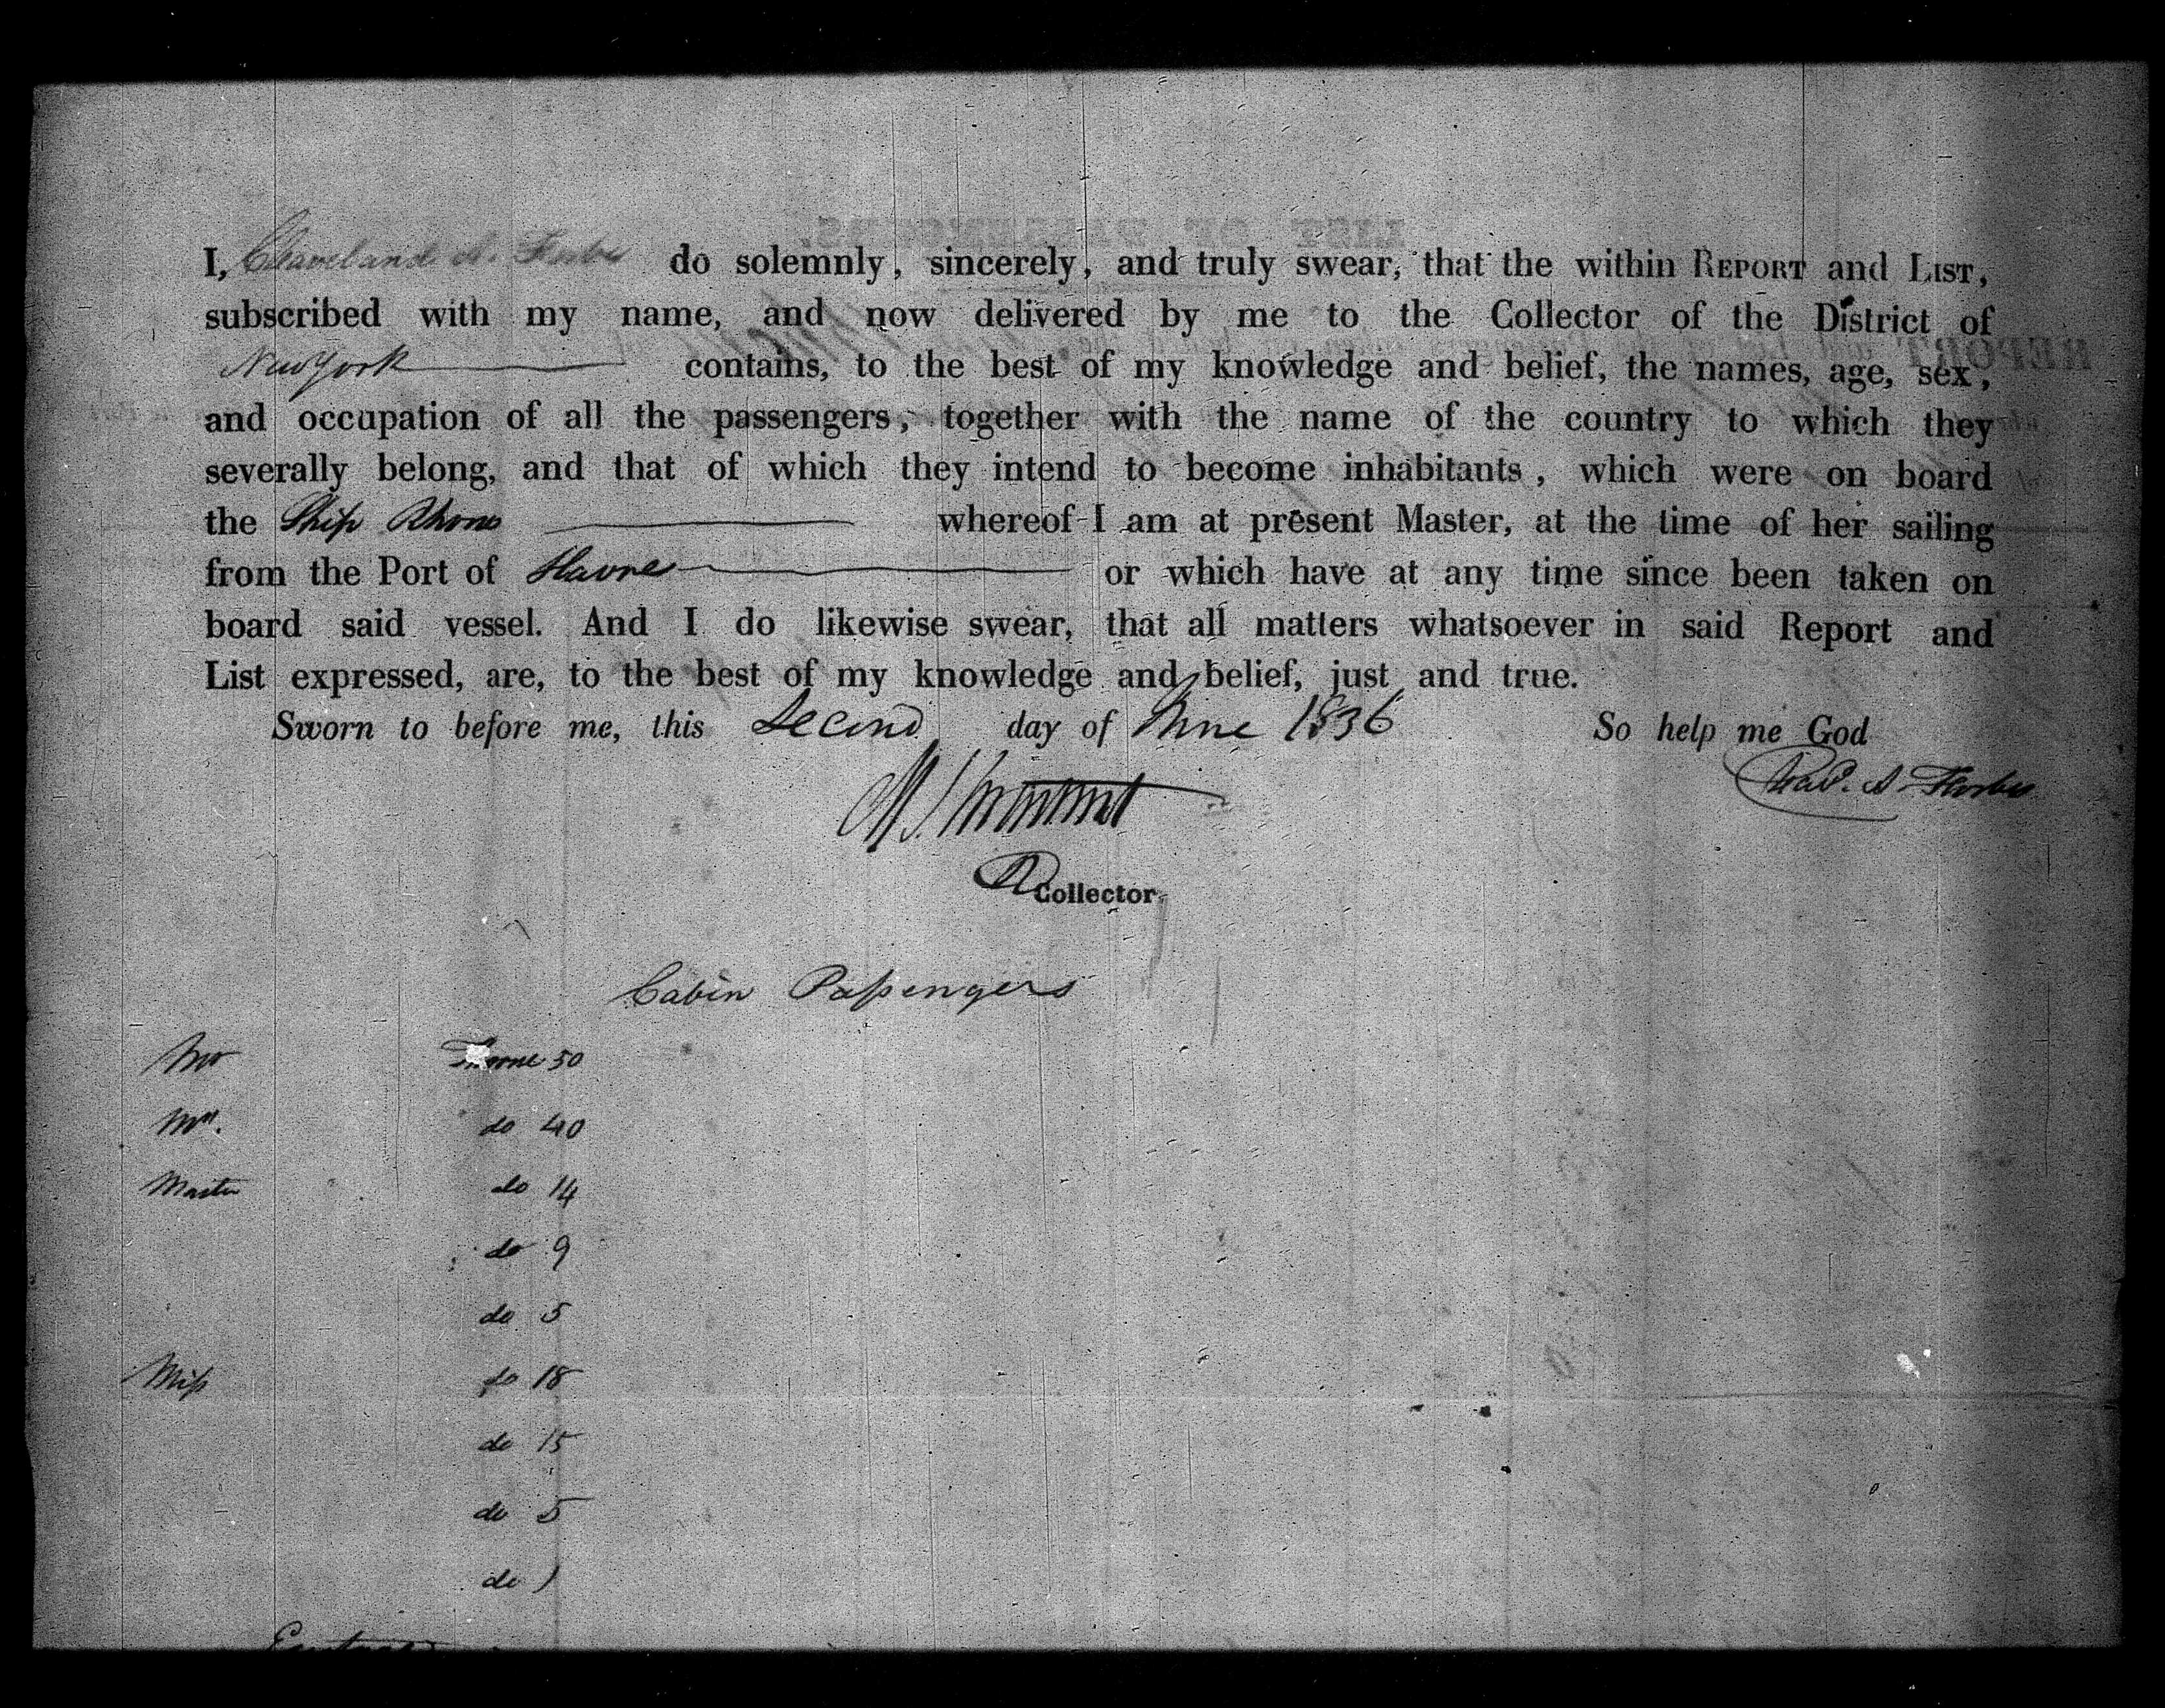 I, Cleaveland A. Forbes do solemnly, sincerely, and truly swear, that the within REPORT and LIST,
subscribed with my name, and now delivered by me to the Collector of the District of
New York contains, to the best of my knowledge and belief, the names, age, sex,
and occupation of all the passengers, together with the name of the country to which they
severally belong, and that of which they intend to become inhabitants, which were on board
the Ship Rhone whereof I am at present Master, at the time of her sailing
from the Port of Havre or which have at any time since been taken on
board said vessel. And I do likewise swear, that all matters whatsoever in said Report and
List expressed, are, to the best of my knowledge and belief, just and true.
Sworn to before me, this Second day of June 1836 So help me God
Cleavd. A Forbes
D Collector.
Cabin Passengers
Mr 50
Mrs. do 40
Master do 14
do 9
do 5
Miss do 18
do 15
do 5
do 1